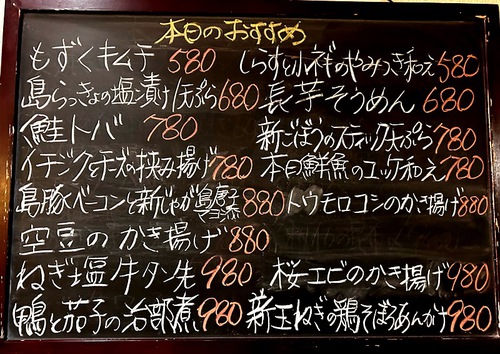 本日のおすすめ
もずくキムチ 580
しらすと小祥のやみつき和え 580
島らっきょの塩漬け/天ぷら 680
長芋そうめん 680
鮭トバ 780
新ごぼうのスティック天ぷら 780
イチジクとチーズの挟み揚げ 780
本日鮮魚のユッケ和え 780
島豚ベーコンと新じゃが 島唐子マヨネ 880
トウモロコシのかき揚げ 880
空豆のかき揚げ 880
ねぎ塩牛タン先 980
桜エビのかき揚げ 980
鴨と茄子の治部煮 980
新玉ねぎの鶏そぼろあんかけ 980